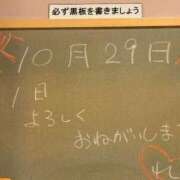 必ず黒板を書きましょう
10月29日
1日
よろしく
おねがいしま